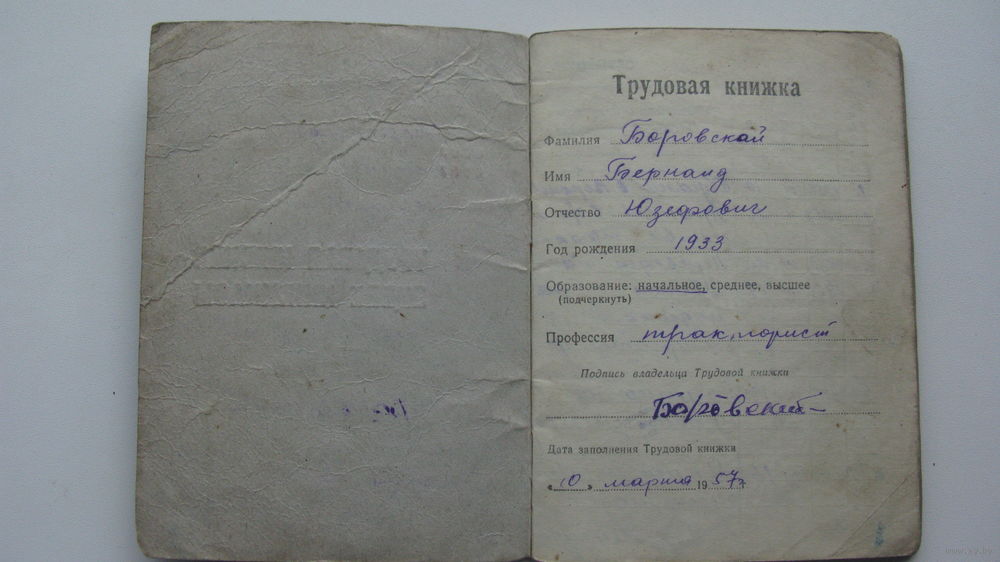 Трудовая книжка
Фамилия Боровский
Имя Бернард
Отчество Юзефович
Год рождения 1933
Образование: начальное, среднее, высшее
(подчеркнуть)
Профессия тракторист
Подпись владельца Трудовой книжки
Боровский
Дата заполнения Трудовой книжки
«10» марта 1957г